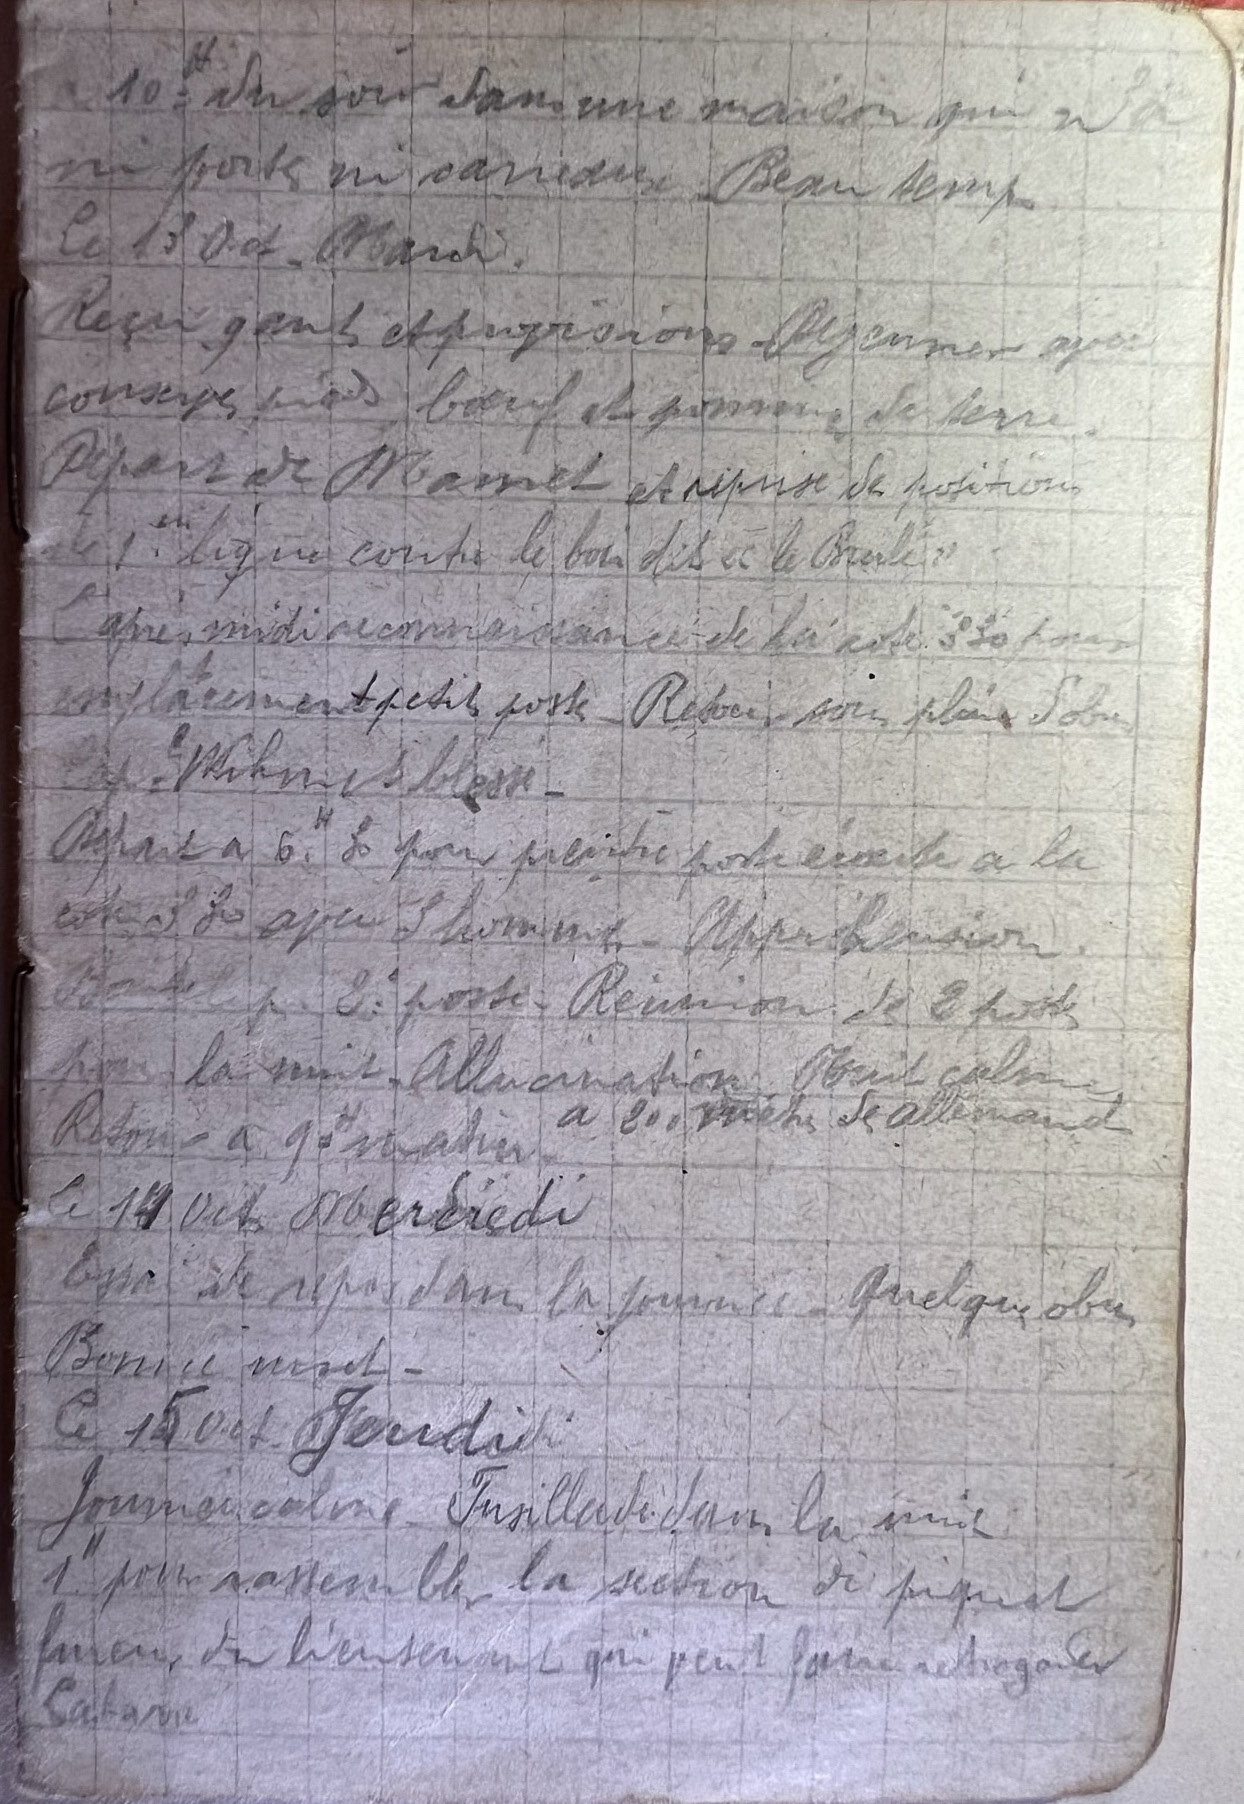 10.H du soir dans une maison qui n'a
ni portes ni carreaux. Beau temps
Le 13 Oct. Mardi.
Reçu gants et provisions. Déjeuner avec
conserves, bœuf et pommes de terre.
Départ de Mamet et reprise des positions
de 1.ere ligne contre le bois dit "le Brulé"
L'après midi reconnaissance de la cote 330 pour
emplacement petits postes - Retour sous pluie d'obus
blessé -
Départ a 6.H 30 pour prendre poste écoute a la
cote 330 avec 3 hommes - Appréhension.
p. 2.e poste - Réunion de 2 postes
pour la nuit - Allucination. Nuit calme
a 200 mètres des allemands
Retour a 9 H matin -
Le 14 Oct. Mercredi
Essai de repos dans la journée - Quelques obus
Bonne nuit -
Le 15 Oct. Jeudi
Journée calme - Fusillade dans la nuit
1H pour rassembler la section de piquet
fureur du lieutenant qui veut faire rétrograder